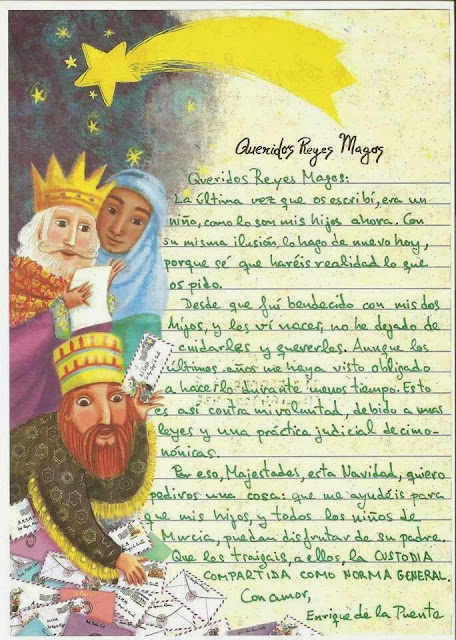 Queridos Reyes Magos
Queridos Reyes Magos:
La última vez que os escribí, era un
niño, como lo son mis hijos ahora. Con
su misma ilusión lo hago de nuevo hoy,
porque sé que haréis realidad lo que
os pido.
Desde que fuí bendecido con mis dos
hijos, y los ví nacer, no he dejado de
cuidarles y quererles. Aunque los
últimos años me haya visto obligado
a hacerlo durante menos tiempo. Esto
es así contra mi voluntad, debido a unas
leyes y una práctica judicial decimo-
nónicas.
Por eso, Majestades, esta Navidad, quiero
pediros una cosa: que me ayudéis para
que mis hijos, y todos los niños de
Murcia, puedan disfrutar de su padre.
Que les traigais, a ellos, la CUSTODIA
COMPARTIDA COMO NORMA GENERAL.
Con amor,
Enrique de la Puente